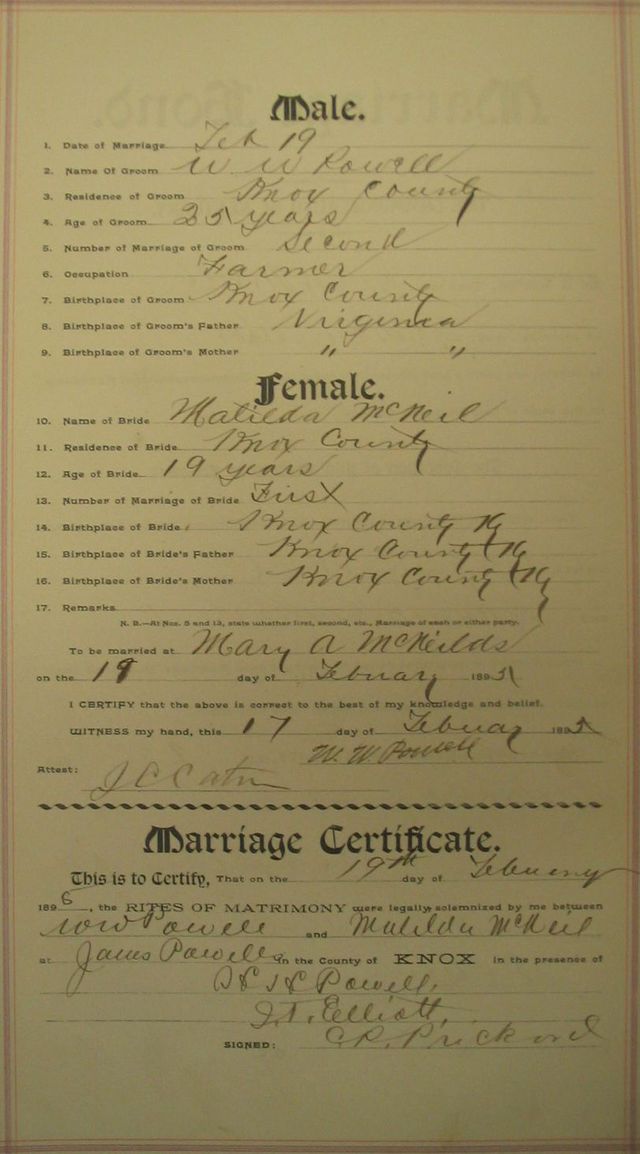 Male.
1. Date of Marriage Feb 19
2. Name Of Groom W W Powell
3. Residence of Groom Knox County
4. Age of Groom 25 years
5. Number of Marriage of Groom Second
6. Occupation Farmer
7. Birthplace of Groom Knox County
8. Birthplace of Groom's Father Virginia
9. Birthplace of Groom's Mother " "
Female.
10. Name of Bride Matilda McNeil
11. Residence of Bride Knox County
12. Age of Bride 19 years
13. Number of Marriage of Bride First
14. Birthplace of Bride. Knox County Ky
15. Birthplace of Bride's Father Knox County Ky
16. Birthplace of Bride's Mother Knox County Ky
17. Remarks
N. B.—At Nos. 5 and 13, state whether first, second, etc., Marriage of each or either party.
To be married at Mary A McNeilds
on the 19 day of Febuary 1895
I CERTIFY that the above is correct to the best of my knowledge and belief.
WITNESS my hand, this 17 day of Febuary 1895
W. W. Powell
Attest: J C Catron
Marriage Certificate.
This is to Certify, That on the 19th day of Febuary
1895, the RITES OF MATRIMONY were legally solemnized by me between
W W Powell and Matilda McNeil
at James Powells in the County of KNOX in the presence of
Powell,
J. T. Elliott,
SIGNED: